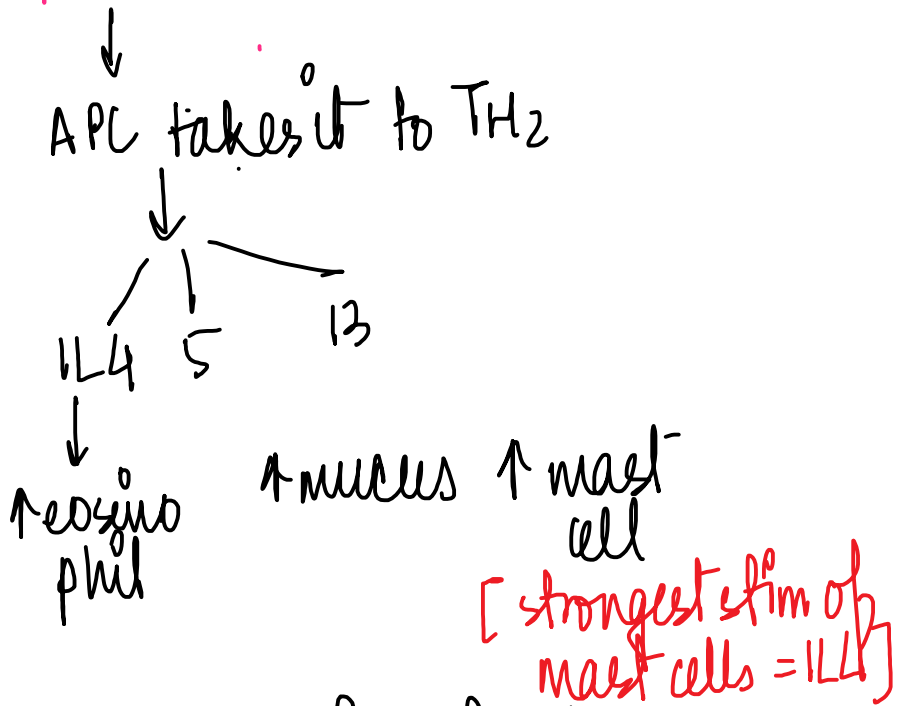 ↓
APC takes it to TH2
↓
IL4 5 13
↓
↑eosino ↑mucus ↑ mast
phil cell
[strongest stim of
mast cells = IL4]